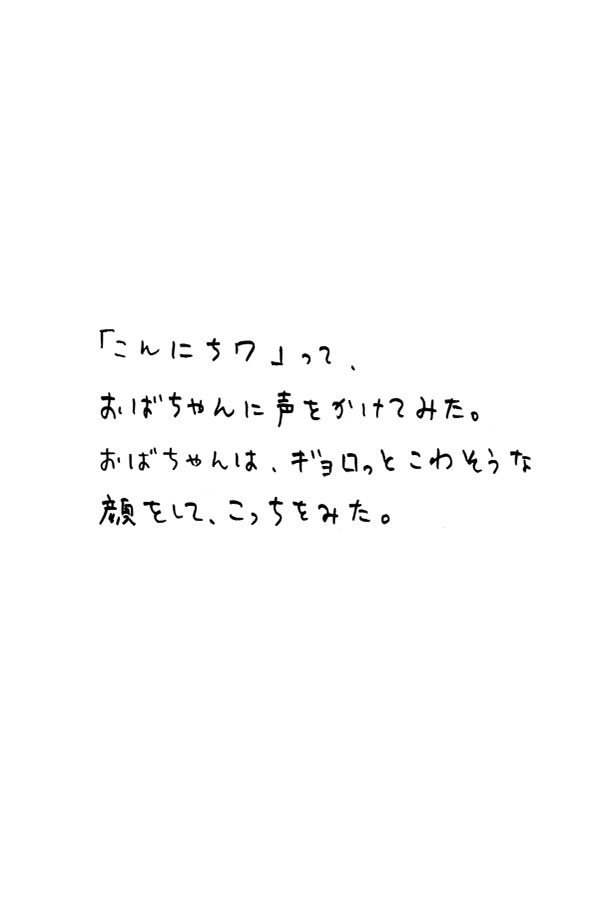 「こんにちワ」って、
おばちゃんに声をかけてみた。
おばちゃんは、ギョロっとこわそうな
顔をして、こっちをみた。